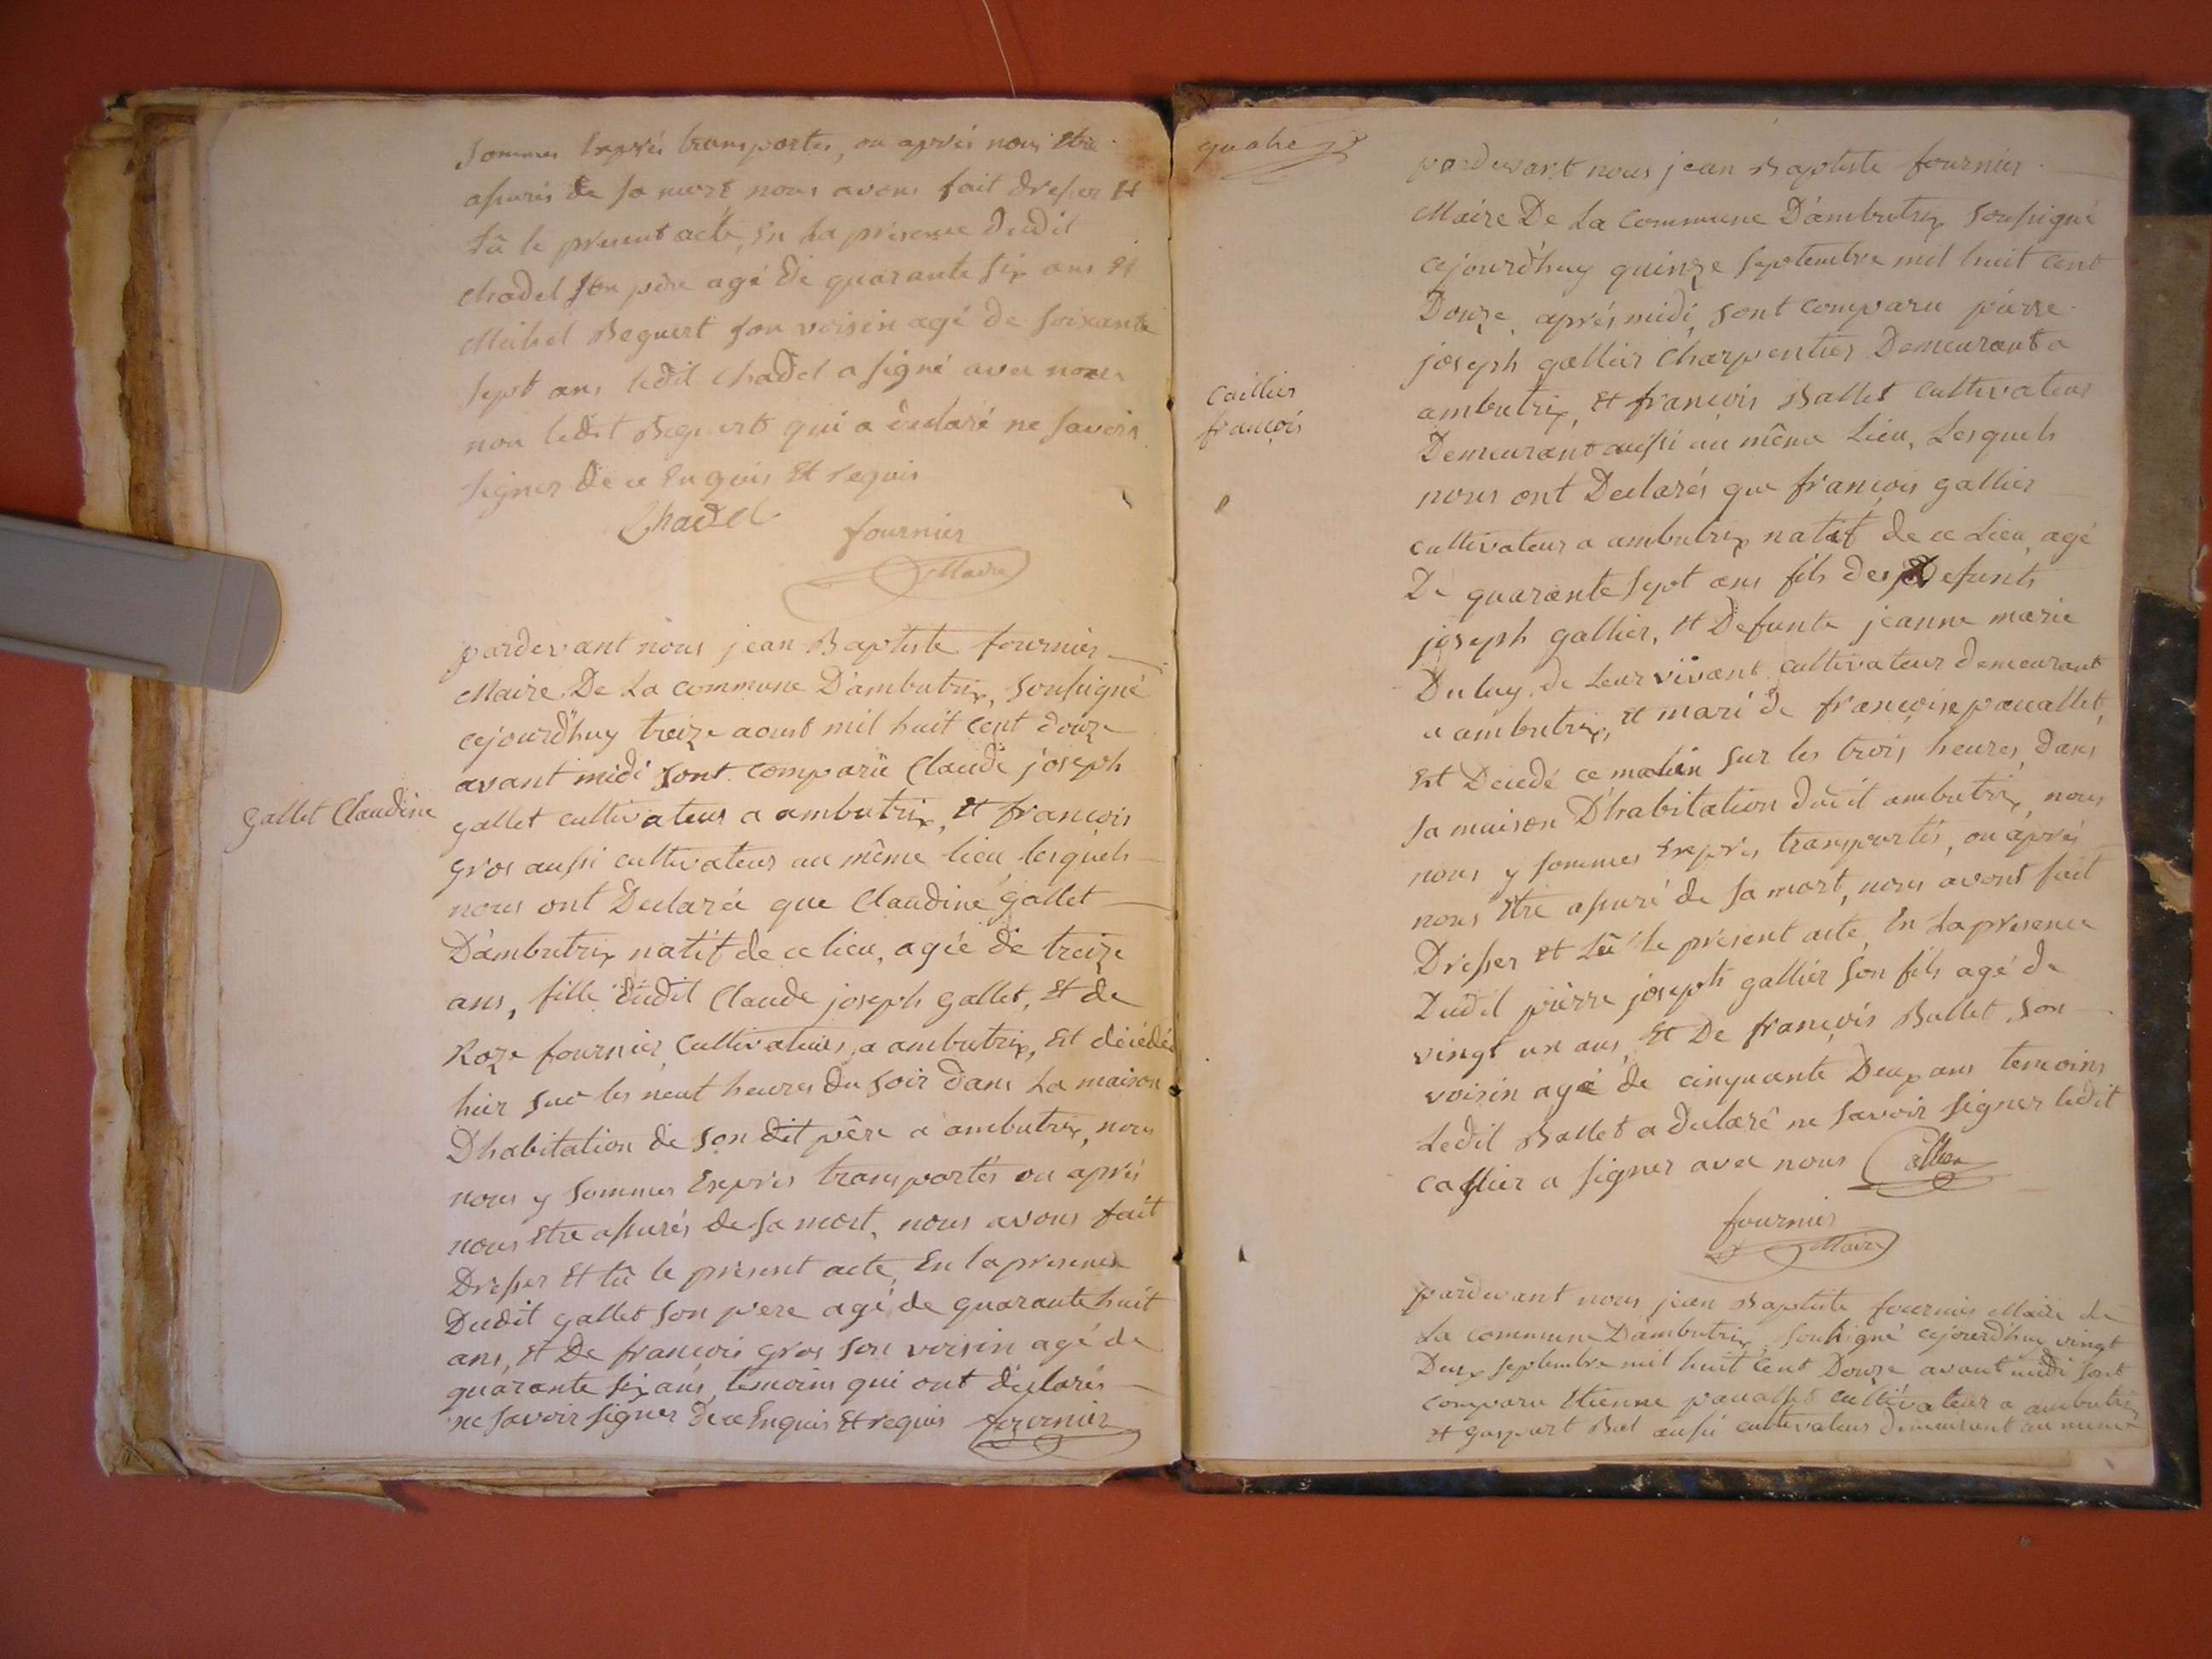 sommes Exprés transportés, ou aprés nous être
assurés de sa mort, nous avons fait dresser Et
Lû le present acte, En La présence dudit
chadel son père agé de quarante six ans Et
Michel Beguert son voisin agé de soixante
sept ans ledit chadel a signé avec nous
non ledit Beguerts qui a declaré ne savoir
signer de ce Enquis Et requis
Chadel fournier
Maire
pardevant nous jean Baptiste fournier
Maire De La commune D'ambutrix, soussigné
cejourd'huy treize aoust mil huit cent douze
avant midi sont comparü Claude joseph
Gallet Claudine
gallet cultivateur a ambutrix, Et françois
gros aussi cultivateur au même lieu, lesquels
nous ont Declaré que Claudine gallet
D'ambutrix natif de ce lieu, agée de treize
ans, fille dudit Claude joseph gallet, Et de
Roze fournier Cultivateurs a ambutrix, Est décédée
hier sur les neuf heures du soir dans La maison
D'habitation de son dit père a ambutrix, nous
nous y sommes Exprés transportés ou aprés
nous Etre assurés de sa mort, nous avons fait
Dresser Et lû le présent acte, En la presence
Dudit gallet son père agé de quarante huit
ans, Et De françois gros son voisin agé de
quarante six ans, temoins qui ont declarés
ne savoir signer de ce Enquis Et requis fournier
quatre
pardevant nous jean Baptiste fournier
Maire De La Commune D'ambutrix soussigné
cejourd'huy quinze septembre mil huit cent
Douze, aprés midi, sont comparu pierre
joseph gallier Charpentier Demeurant a
Caillier
françois
ambutrix, Et françois Ballet cultivateur
Demeurant aussi au même Lieu, Lesquels
nous ont Declarés que françois gallier
cultivateur a ambutrix natif de ce Lieu, agé
De quarante sept ans fils des Defunts
joseph gallier, Et Defunte jeanne marie
Duluy, de Leur vivant cultivateur demeurant
a ambutrix, Et mari de françoise pauallet,
Est Decedé ce matin sur les trois heures, dans
sa maison D'habitation dudit ambutrix, nous
nous y sommes Exprés transportés, ou aprés
nous Etre assuré de sa mort, nous avons fait
Dresser Et Lû le présent acte, En La presence
Dudit pierre joseph gallier son fils agé de
vingt un ans, Et De françois Ballet son
voisin agé de cinquante Deux ans temoins
Ledit Ballet a declaré ne savoir signer ledit
callier a signer avec nous Callier
fournier
Maire
pardevant nous jean Baptiste fournier Maire de
La commune D'ambutrix, soussigné cejourd'huy vingt
Deux septembre mil huit cent Douze avant midi sont
comparu Etienne pauallet cultivateur a ambutrix
Et gaspart Biel aussi cultivateur demeurant au meme